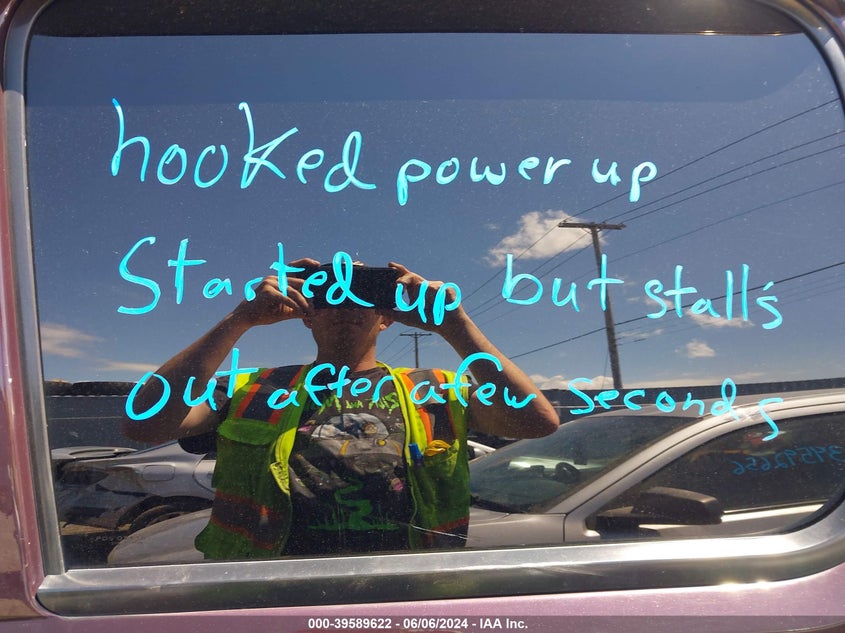 hooked power up
Started up but stall's
out after a few seconds
39592656
000-39589622 - 06/06/2024 - IAA Inc.